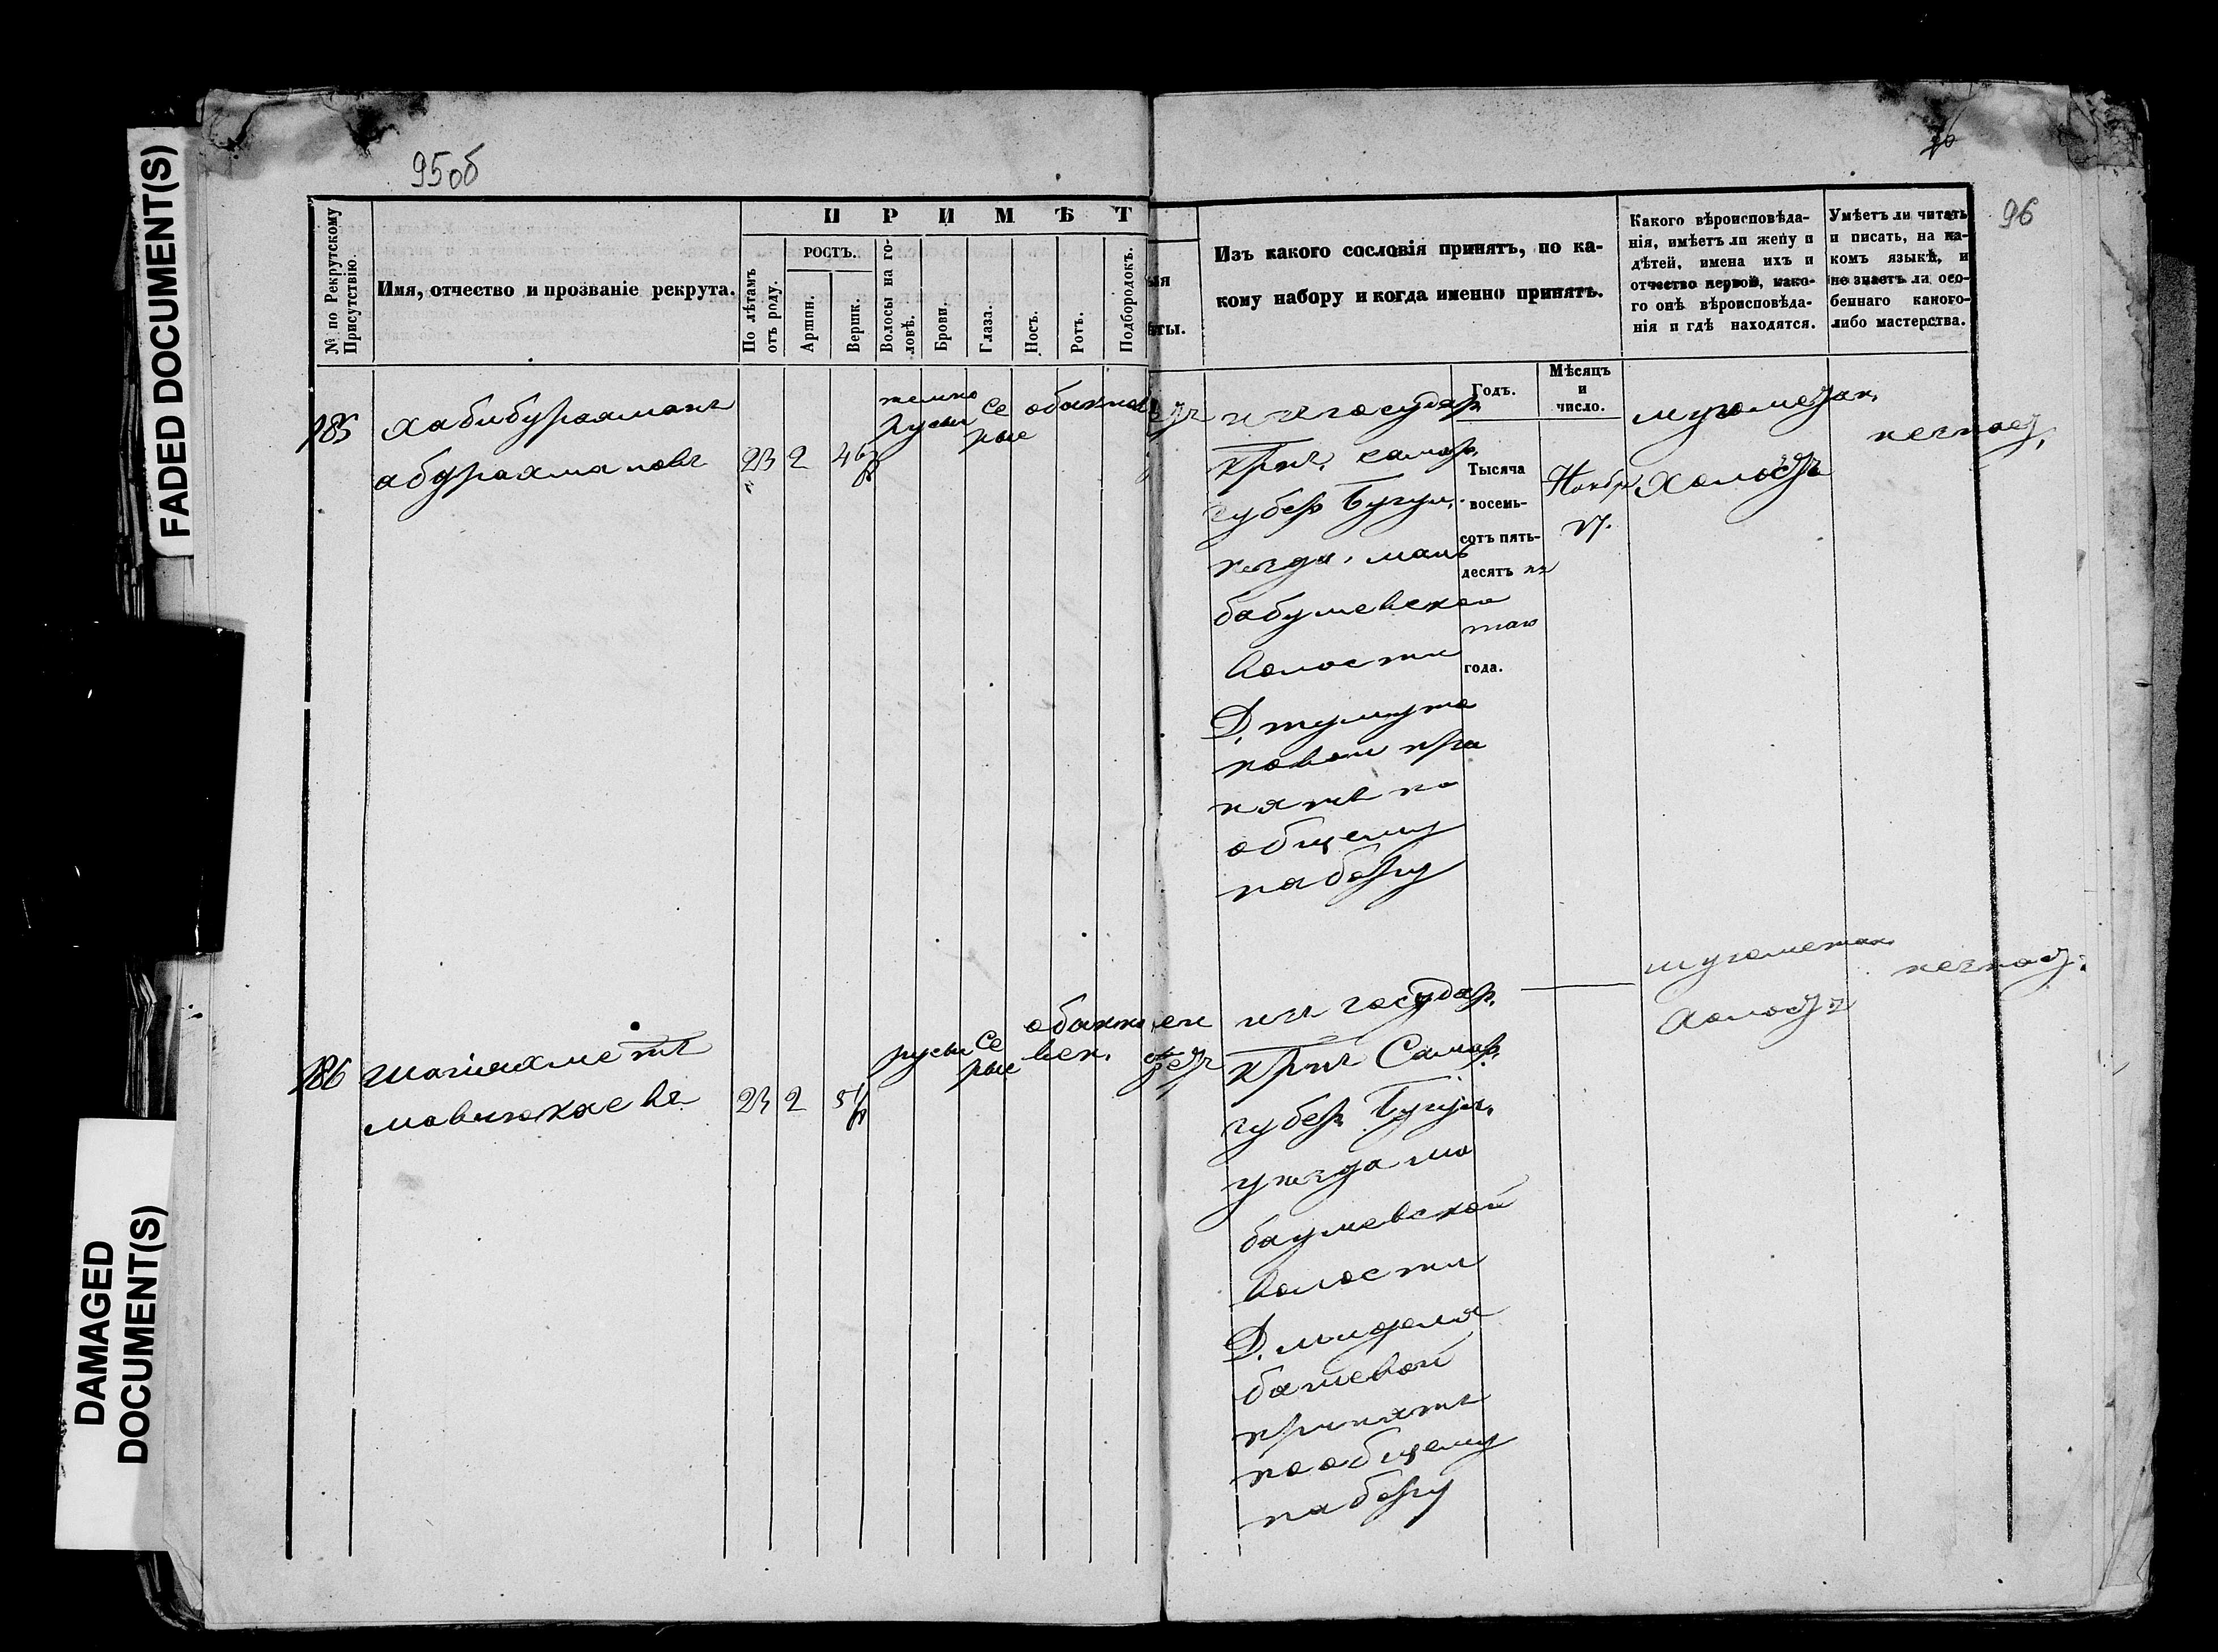 FADED DOCUMENT(S)
DAMAGED
DOCUMENT(S)
95об
96
№ по Рекрутскому
Присутствію
Имя, отчество и прозваніе рекрута.
П Р И М Ѣ Т
По лѣтамъ
отъ роду.
РОСТЪ.
Аршин.
Вершк.
Волосы на го-
ловѣ.
Брови.
Глаза.
Носъ.
Ротъ.
Подбородокъ.
ыя
ѣты.
Изъ какого сословія принятъ, по ка-
кому набору и когда именно принятъ.
Какого вѣроисповѣда-
нія, имѣетъ ли жену и
дѣтей, имена ихъ и
отчество первой, како-
го онѣ вѣроисповѣда-
нія и гдѣ находятся.
Умѣетъ ли читать
и писать, на ка-
комъ языкѣ, и
не знаетъ ли осо-
беннаго какого-
либо мастерства.
Годъ.
Мѣсяцъ
и
число.
185
хабибурахманъ
абдрахмановъ
23
2
темно
русы
се
рые
обыкнов
изъ государ.
крт. самар.
губер Бугул.
уезда. мань
бабушевской
волости
Д.
принятъ по
общему
набору
Тысяча
восемь-
сотъ пять-
десятъ пя
таго
года.
Ноябр
17.
мугаметан.
холостъ
незнает.
186
шагиахметъ
мавлюкаевъ
23
2
русы
се
рые
обыкновен
вен.
изъ государ.
крт Самар.
губер Бугул.
уезда
волости
Д.
башевой
принятъ
по общему
набору
мугаметан
холостъ
незнает.